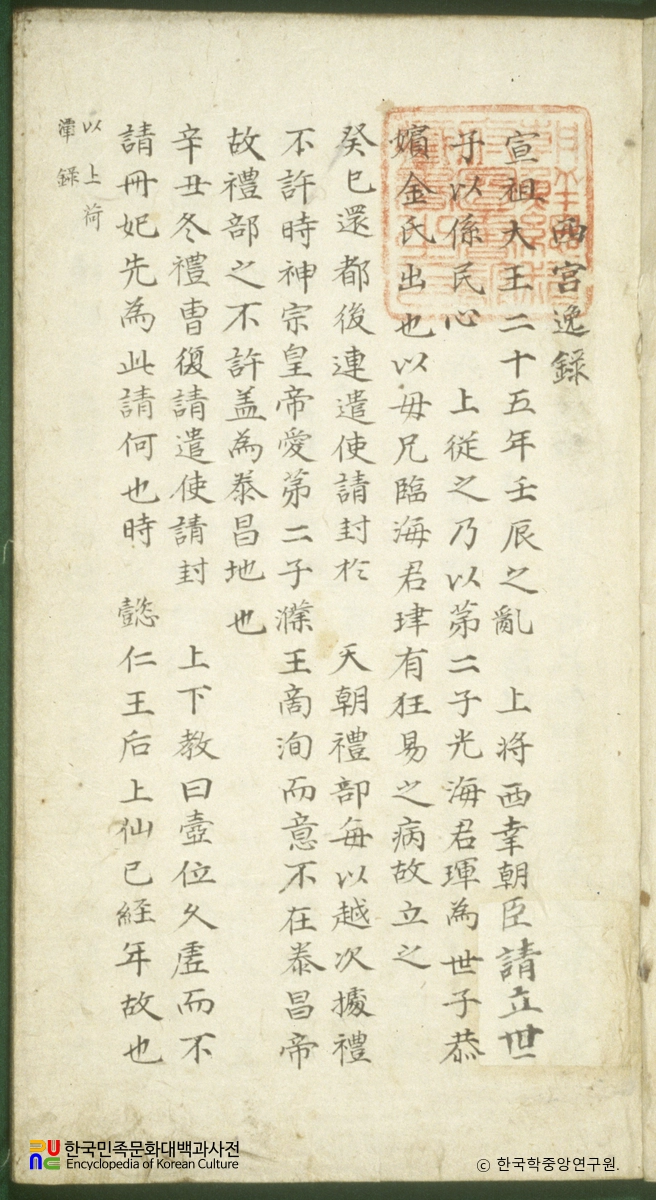 西宮逸錄
宣祖大王二十五年壬辰之亂 上將西幸朝臣請立世
子以係民心 上從之乃以第二子光海君琿為世子恭
嬪金氏出也以母兄臨海君珒有狂易之病故立之
癸巳還都後連遣使請封於 天朝禮部每以越次據禮
不許時神宗皇帝愛第二子濼王商洵而意不在泰昌帝
故禮部之不許盖為泰昌地也
辛丑冬禮曹復請遣使請封 上下教曰壼位久虛而不
請冊妃先為此請何也時 懿仁王后上仙已経年故也
以上荷
潭錄
한국민족문화대백과사전
Encyclopedia of Korean Culture
© 한국학중앙연구원.